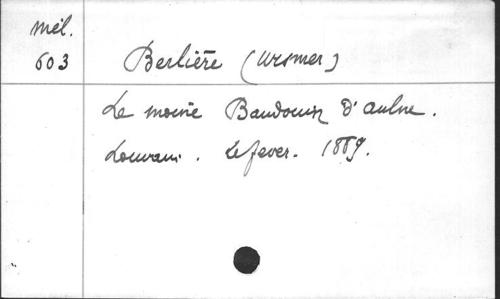 Mél.
603
Berlière (Ursmer)
Le moine Baudouin d'Aulne.
Louvain. Lefever. 1889.